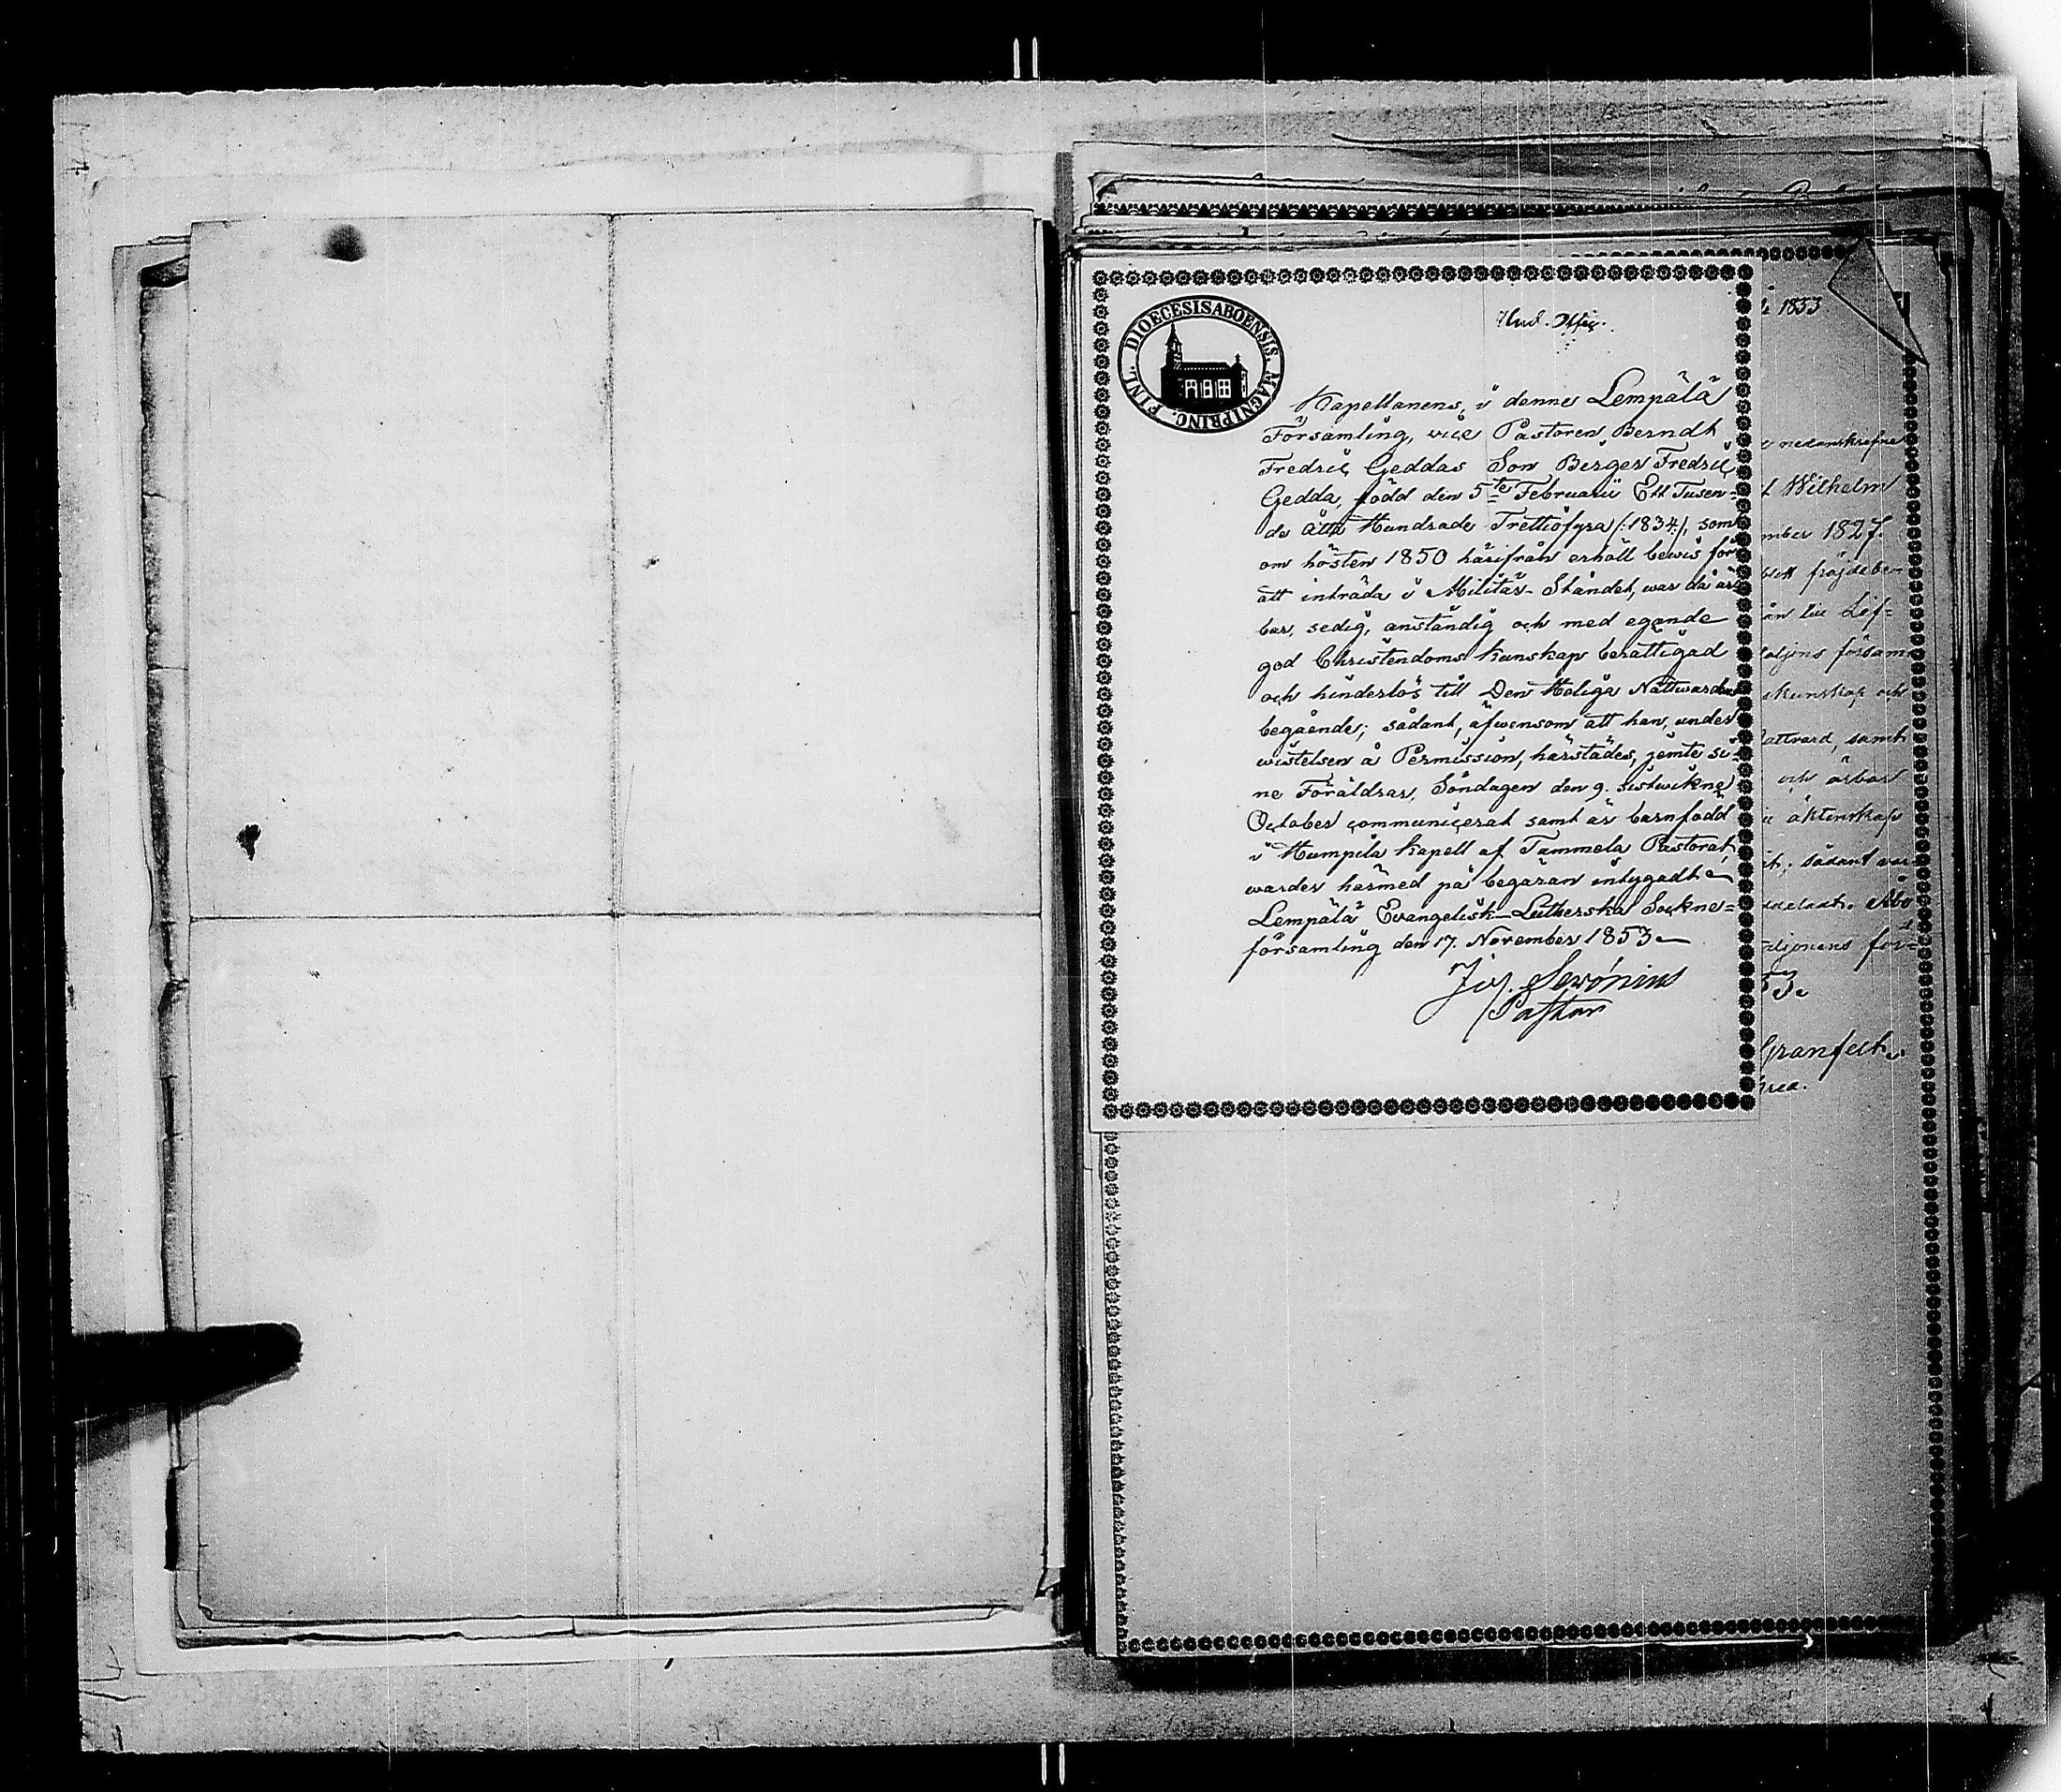 DIOECESIS ABOENSIS. MAGNI PRINC. FINL.
Und. Offic.
Kapellanens, i denne Lempälä
Församling, vice Pastoren Berndt
Fredric Geddas Son Birger Fredric
Gedda, född den 5te Februarii Ett Tusen-
de Åtta Hundrade Trettiofyra /:1834:/, som
om hösten 1850 härifrån erhöll bewis för
att inträda i Militär-Ståndet, war då är-
bar, sedig, anständig och med egande
god Christendoms kunskap berättigad
och hinderlös till Den Heliga Nattwardens
begående; sådant, äfwensom att han, under
wistelsen å Permission, härstädes, jemte si-
ne Föräldrar, Söndagen den 9. sistwikne
October communicerat samt är barnfödd
i Humpila Kapell af Tammela Pastorat,
warder härmed på begäran intygadt
Lempälä Evangelisk-Lutherska Sockne=
församling den 17. November 1853
Pastor
1853
nedanskrefne
Wilhelm
mber 1827.
fräjdebe-
Lif-
församl
kunskap och
attvard, samt
och ärbar
äktenskap
sådant war-
Åbo
för=
53.
Granfelt.